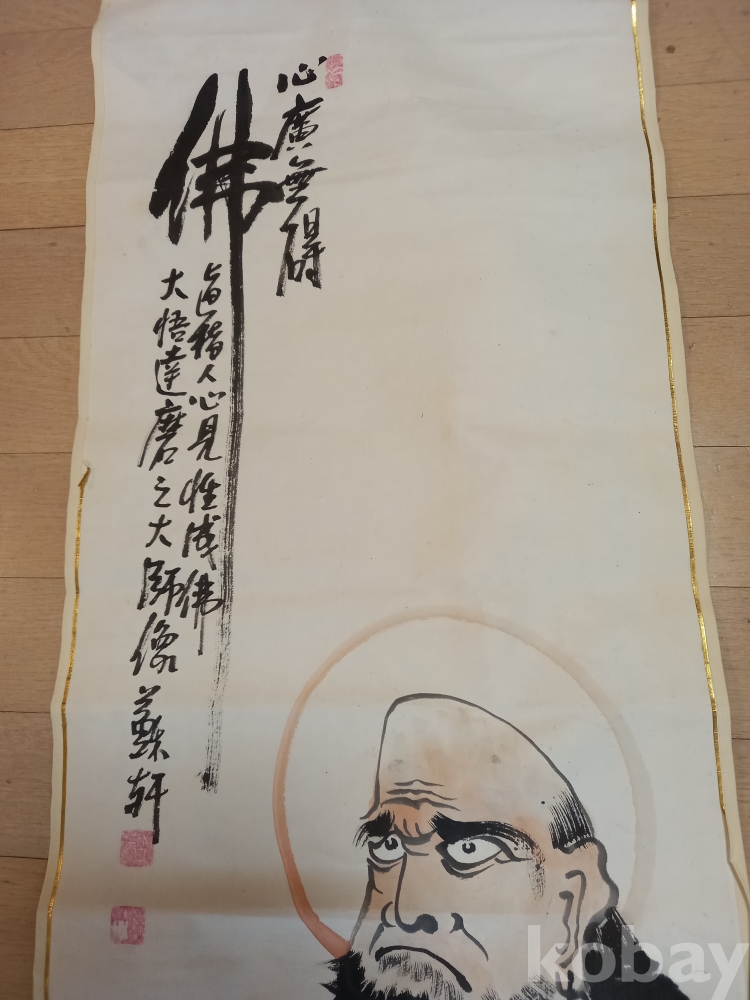 心廣無碍
佛
直指人心見性成佛
大悟達磨之大師像 軒
kobay